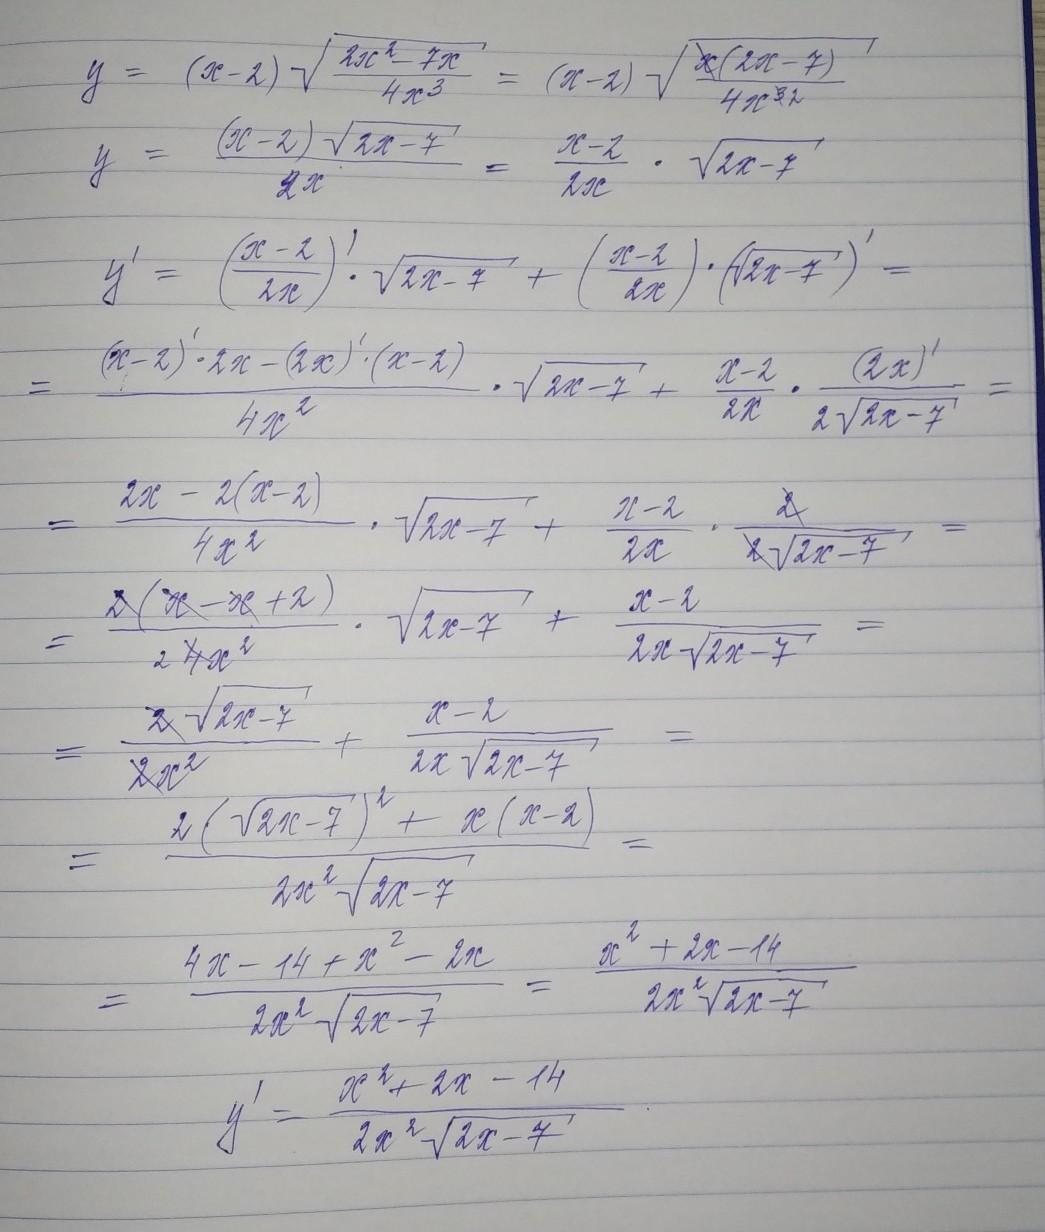 y = (x-2) √((2x² - 7x)/(4x³)) = (x-2) √((x(2x-7))/(4x³²))
y = ((x-2)√(2x-7))/(2x) = (x-2)/(2x) · √(2x-7)
y' = ((x-2)/(2x))' · √(2x-7) + ((x-2)/(2x)) · (√(2x-7))' =
= ((x-2)' · 2x - (2x)' · (x-2))/(4x²) · √(2x-7) + (x-2)/(2x) · (2x)'/(2√(2x-7)) =
= (2x - 2(x-2))/(4x²) · √(2x-7) + (x-2)/(2x) · 2/(2√(2x-7)) =
= (2(x-x+2))/(2 4x²) · √(2x-7) + (x-2)/(2x√(2x-7)) =
= (2√(2x-7))/(2x²) + (x-2)/(2x√(2x-7)) =
= (2(√(2x-7))² + x(x-2))/(2x²√(2x-7)) =
= (4x - 14 + x² - 2x)/(2x²√(2x-7)) = (x² + 2x - 14)/(2x²√(2x-7))
y' = (x² + 2x - 14)/(2x²√(2x-7))